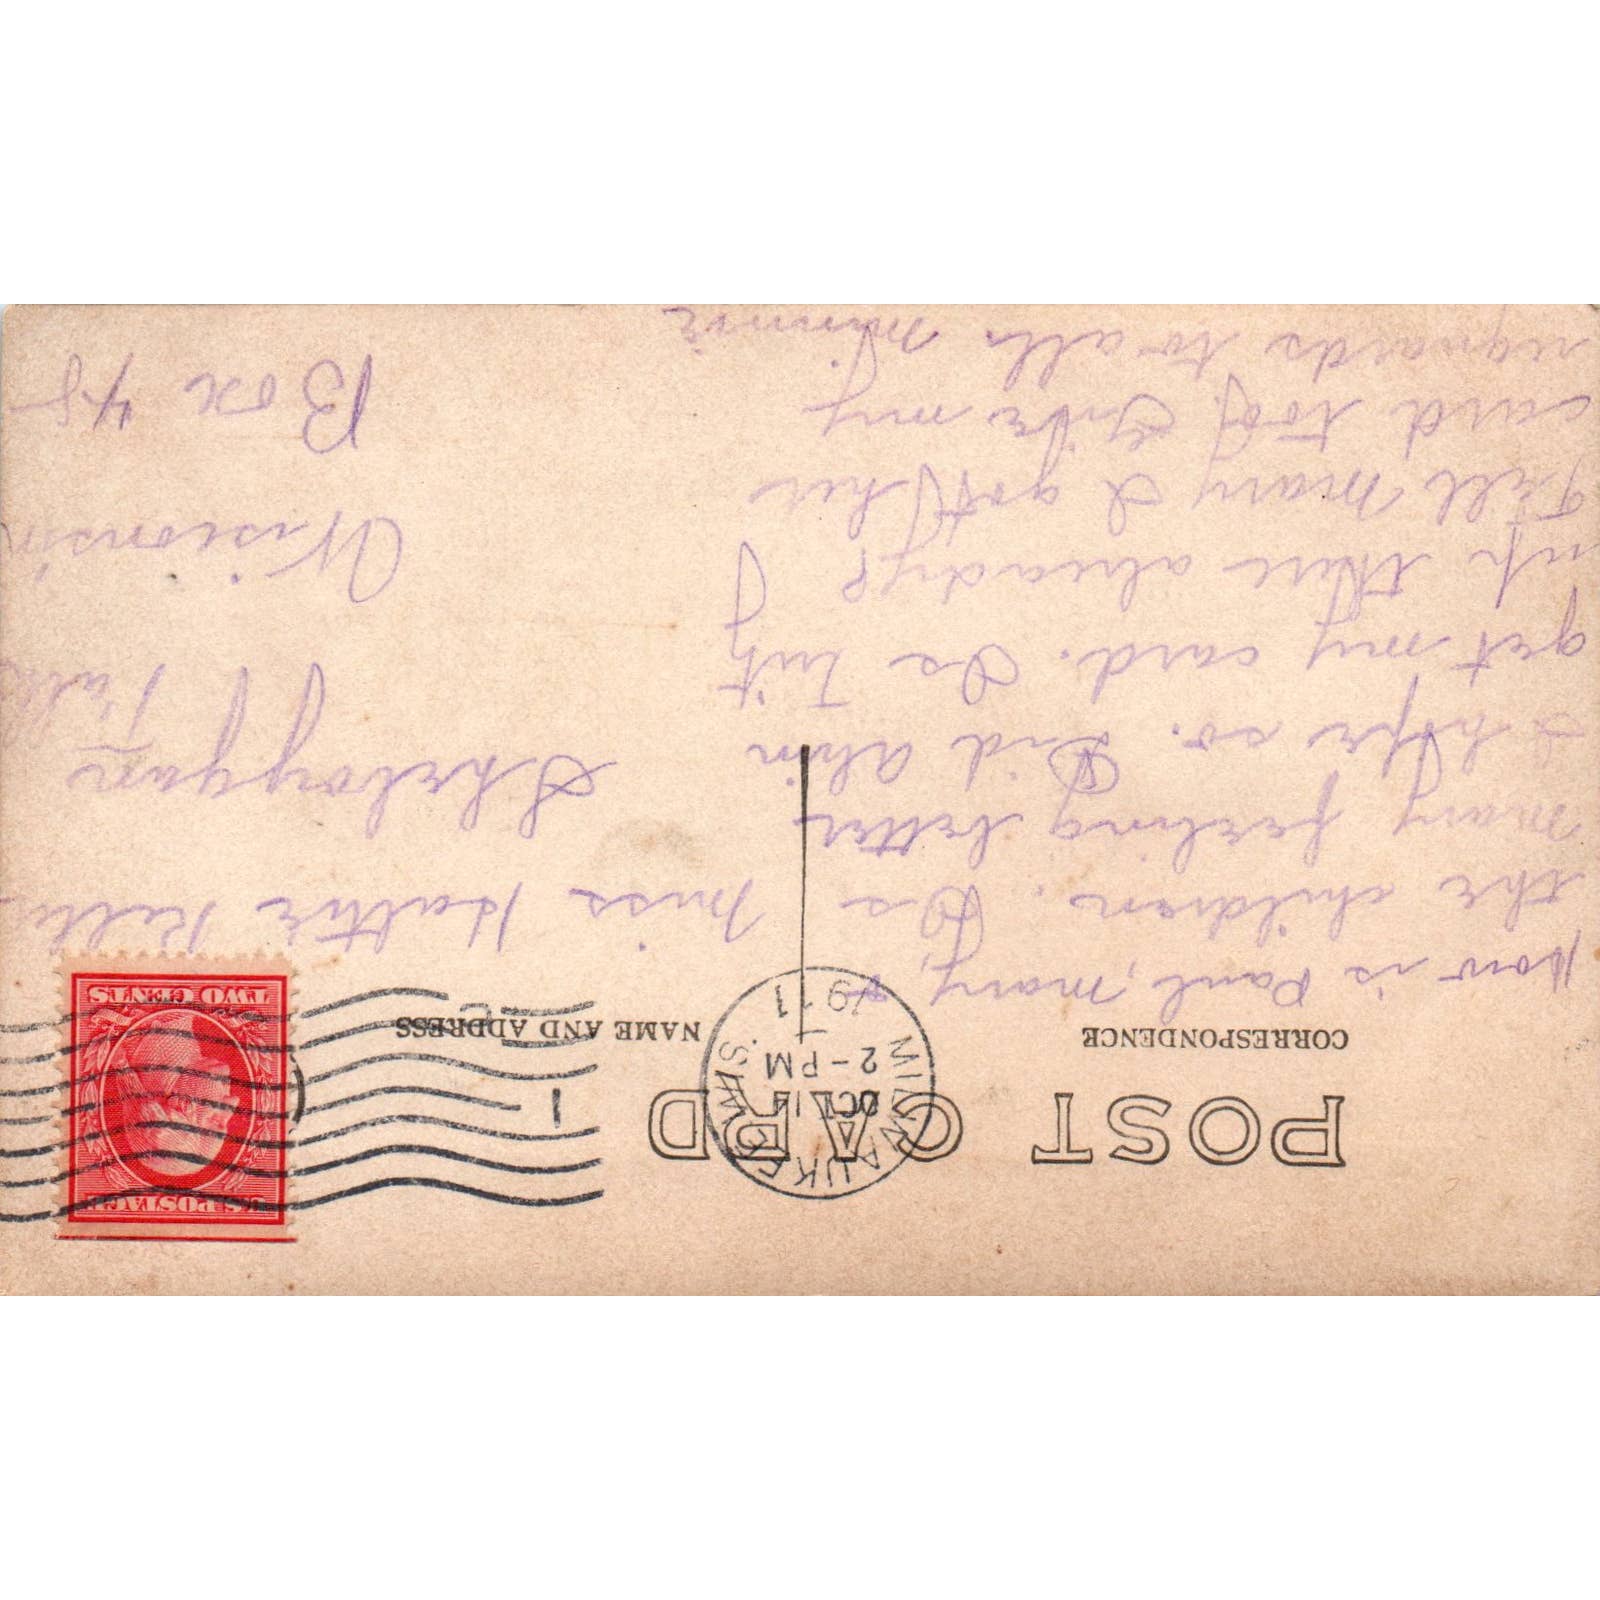 POST CARD
CORRESPONDENCE
NAME AND ADDRESS
MILWAUKEE, WIS.
OCT 1
2-PM
1911
1
U.S. POSTAGE
TWO CENTS
How is Paul, mary, +
the children. Is
mary feeling better
I hope so. Did alvin
get my card. Is
up there already?
Tell mary I got her
card too. Give my
regards to all. minnie
miss Hattie
Sheboygan
Falls
Wisconsin
Box 48